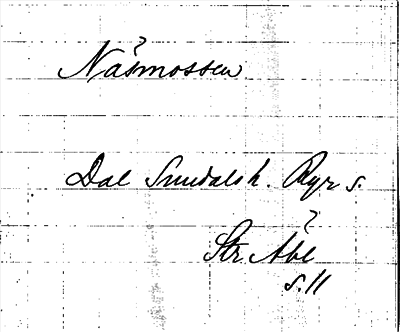 Nåsmossen
Dal Sundals h. Ryr s.
Str. Åbl
s. 11